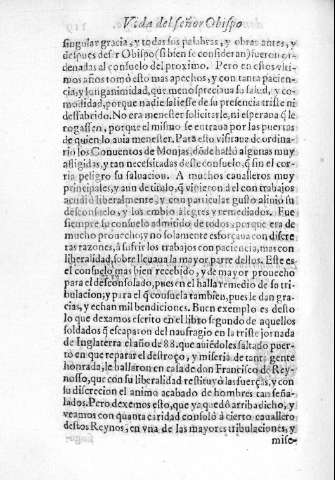 Vida del señor Obispo
singular gracia, y todas sus palabras, y obras antes, y
despues de ser Obispo (si bien se consideran) fueron or-
denadas al consuelo del proximo. Pero en estos vlti-
mos años tomó esto mas apechos, y con tanta pacien-
cia, y longanimidad, que menospreciaua su salud, y co-
modidad, porque nadie saliesse de su presencia triste ni
dessabrido. No era menester solicitarle, ni esperaua q̃ le
rogassen, porque el mismo se entraua por las puertas
de quien lo auia menester. Para esto visitaua de ordina-
rio los Conuentos de Monjas, dõde halló algunas muy
afligidas, y tan necessitadas deste consuelo, q̃ sin el cor-
ria peligro su saluacion. A muchos caualleros muy
principales, y aun de titulo, q̃ vinieron del con trabajos
acudió liberalmente, y con particular gusto aliuió su
desconsuelo, y los embio alegres y remediados. Fue
siempre su consuelo admitido de todos, porque era de
mucho prouecho, y no solamente esforçaua con discre
tas razones, à sufrir los trabajos con paciencia, mas con
liberalidad, sobrelleuaua la mayor parte dellos. Este es
el consuelo mas bien recebido, y de mayor prouecho
para el desconsolado, pues en el halla remedio de su tri-
bulacion, y para el q̃ consuela tambien, pues le dan gra-
cias, y echan mil bendiciones. Buen exemplo es desto
lo que dexamos escrito en el libro segundo de aquellos
soldados q̃ escaparon del naufragio en la triste jornada
de Inglaterra el año de 88. que auiẽdoles faltado puer-
to en que reparar el destroço, y miseria de tanta gente
honrada, le hallaron en casa de dan Francisco de Rey-
nosso, que con su liberalidad restituyó las fuerças, y con
su discrecion el animo acabado de hombres tan seña-
lados. Pero dexemos esto, que ya quedó arriba dicho, y
veamos con quanta caridad consoló à cierto cauallero
destos Reynos, en vna de las mayores tribulaciones, y
mise-